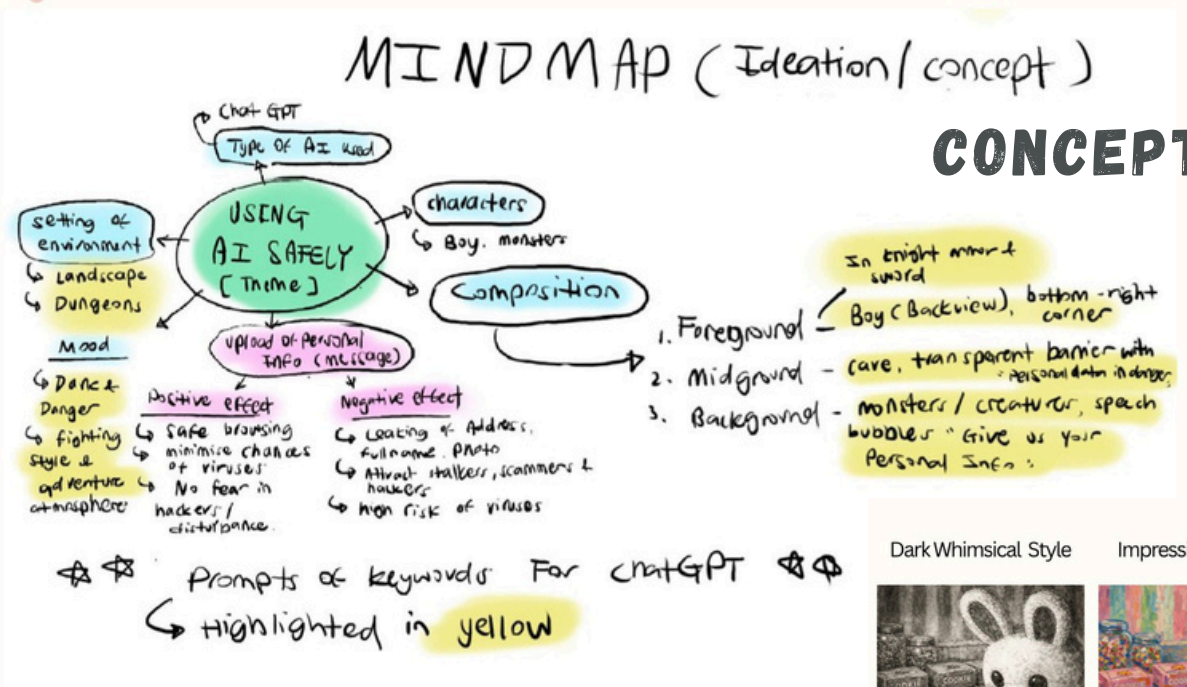 MINDMAP (Ideation/concept)
CONCEPT
Chat GPT
Type of AI used
USING
AI SAFELY
[Theme]
characters
Boy, monsters
Composition
setting of
environment
Landscape
Dungeons
Mood
Danger
fighting
style &
adventure
atmosphere
Upload of Personal
Info (message)
Positive effect
safe browsing
minimise chances
of viruses
No fear in
hackers/
disturbance.
Negative effect
Leaking of Address,
fullname, photo
Attract stalkers, scammers &
hackers
high risk of viruses
1. Foreground
In knight armor &
sword
Boy (Backview), bottom-right
corner
2. Midground - cave, transparent barrier with
Personal data in danger
3. Background - monsters/creatures, speach
bubbles "Give us your
Personal Info"
Prompts of keywords For chatGPT
Highlighted in yellow
Dark Whimsical Style
Impress
COOKIE